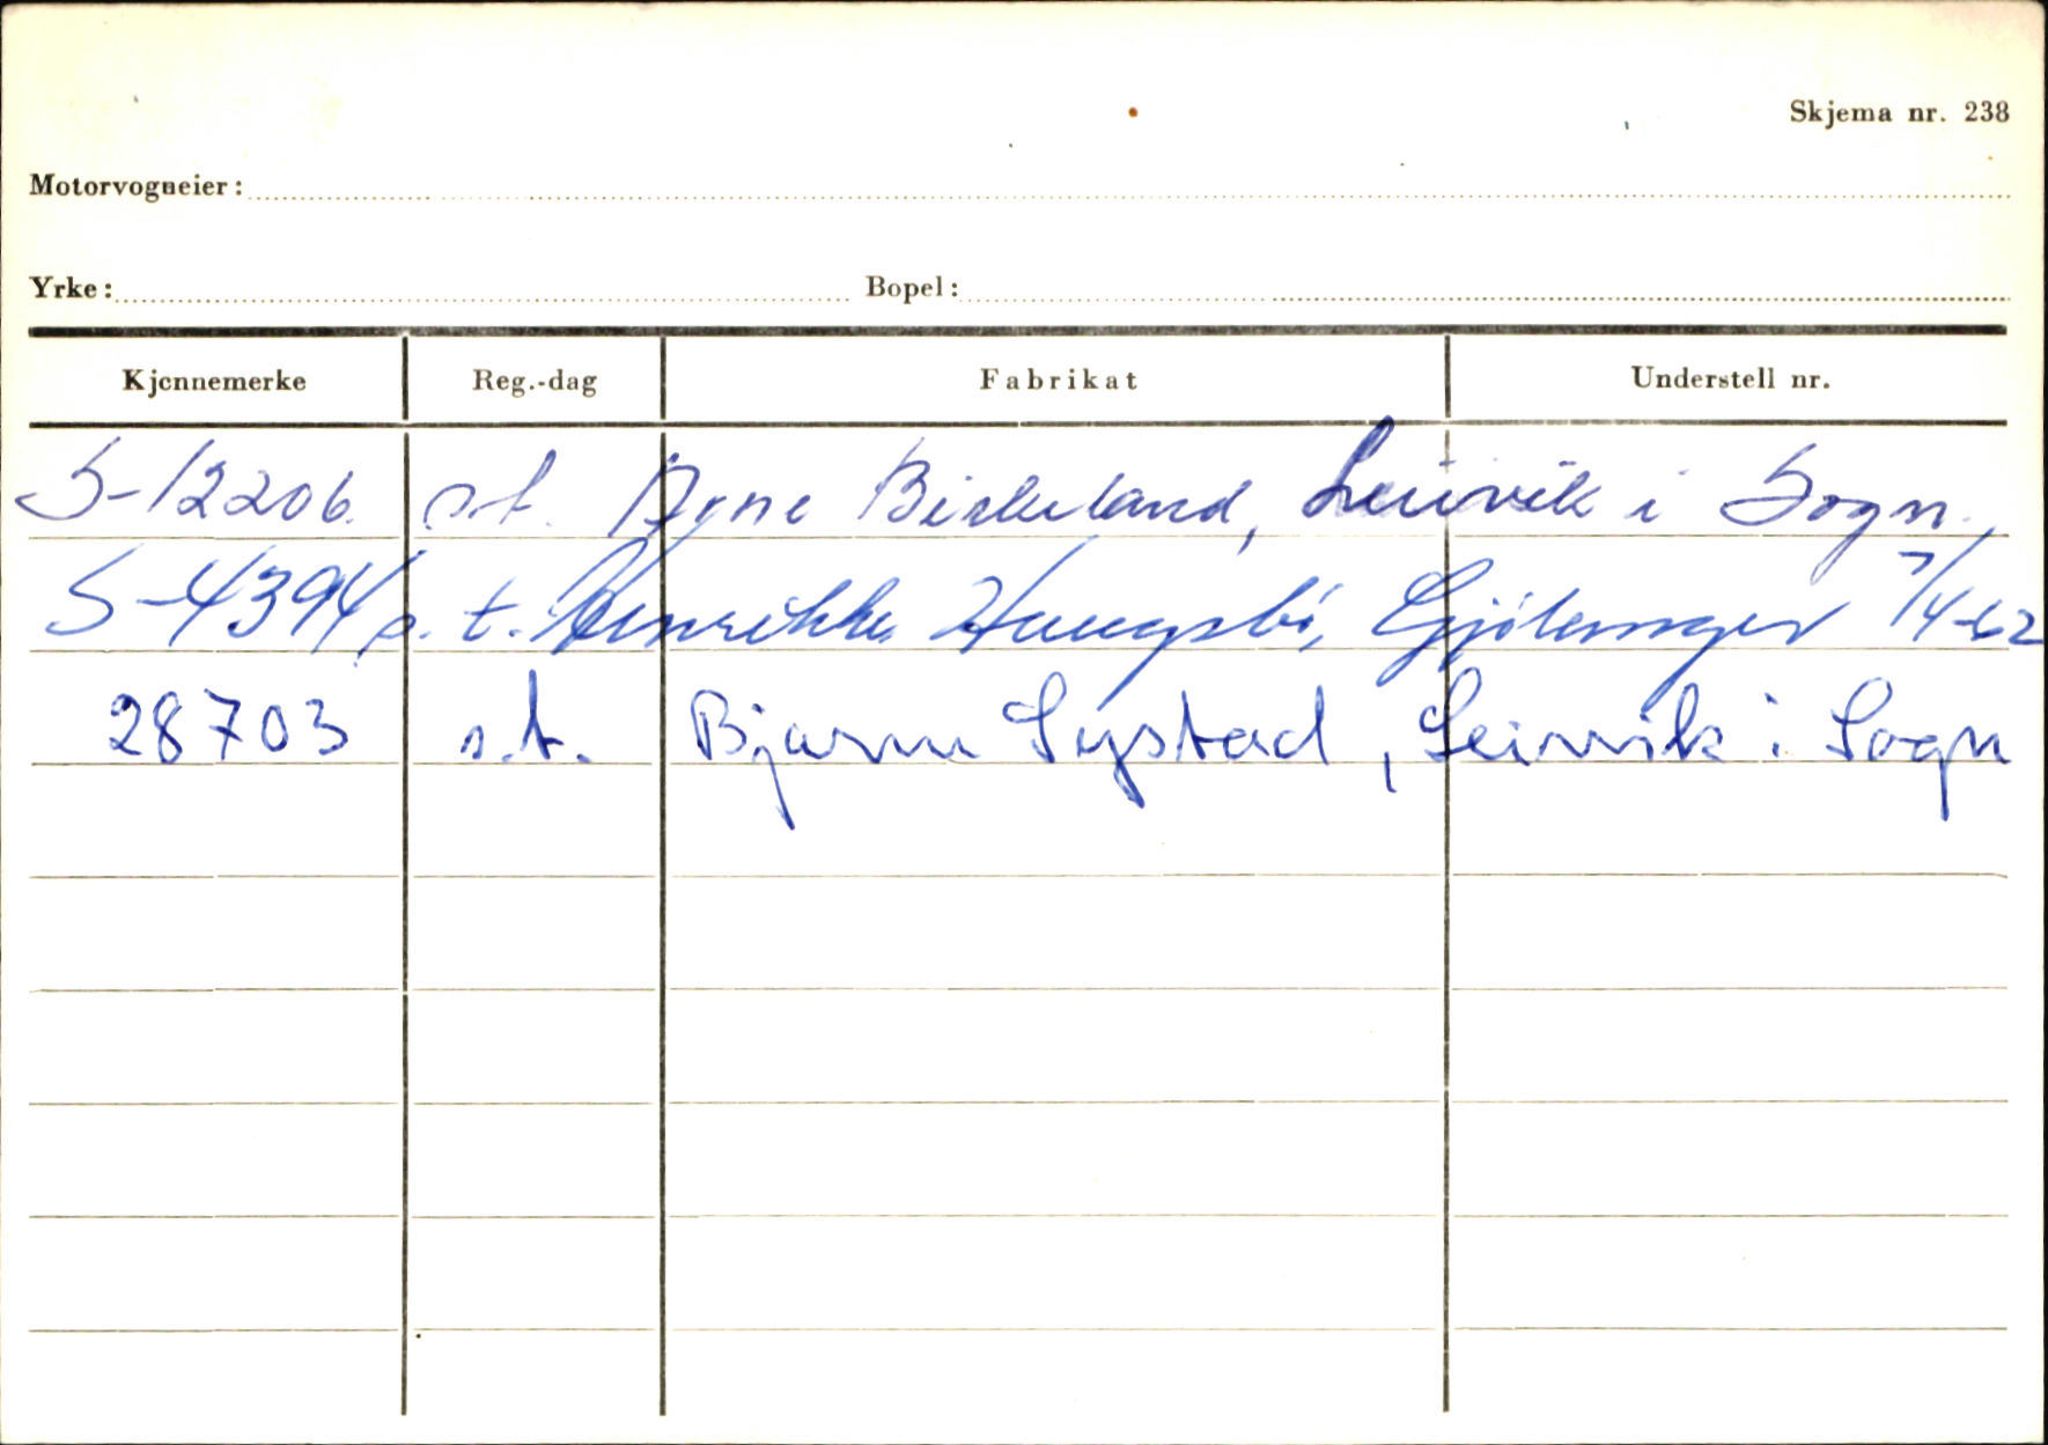 Skjema nr. 238
Motorvogneier:
Yrke: Bopel:
Kjennemerke Reg.-dag Fabrikat Understell nr.
S-12206. s.t. Agne Birkeland, Leirvik i Sogn.
S-4394 s.t. Henrikke Haugsbö, 7/4-62
28703 s.t. Bjarne Systad, Leirvik i Sogn